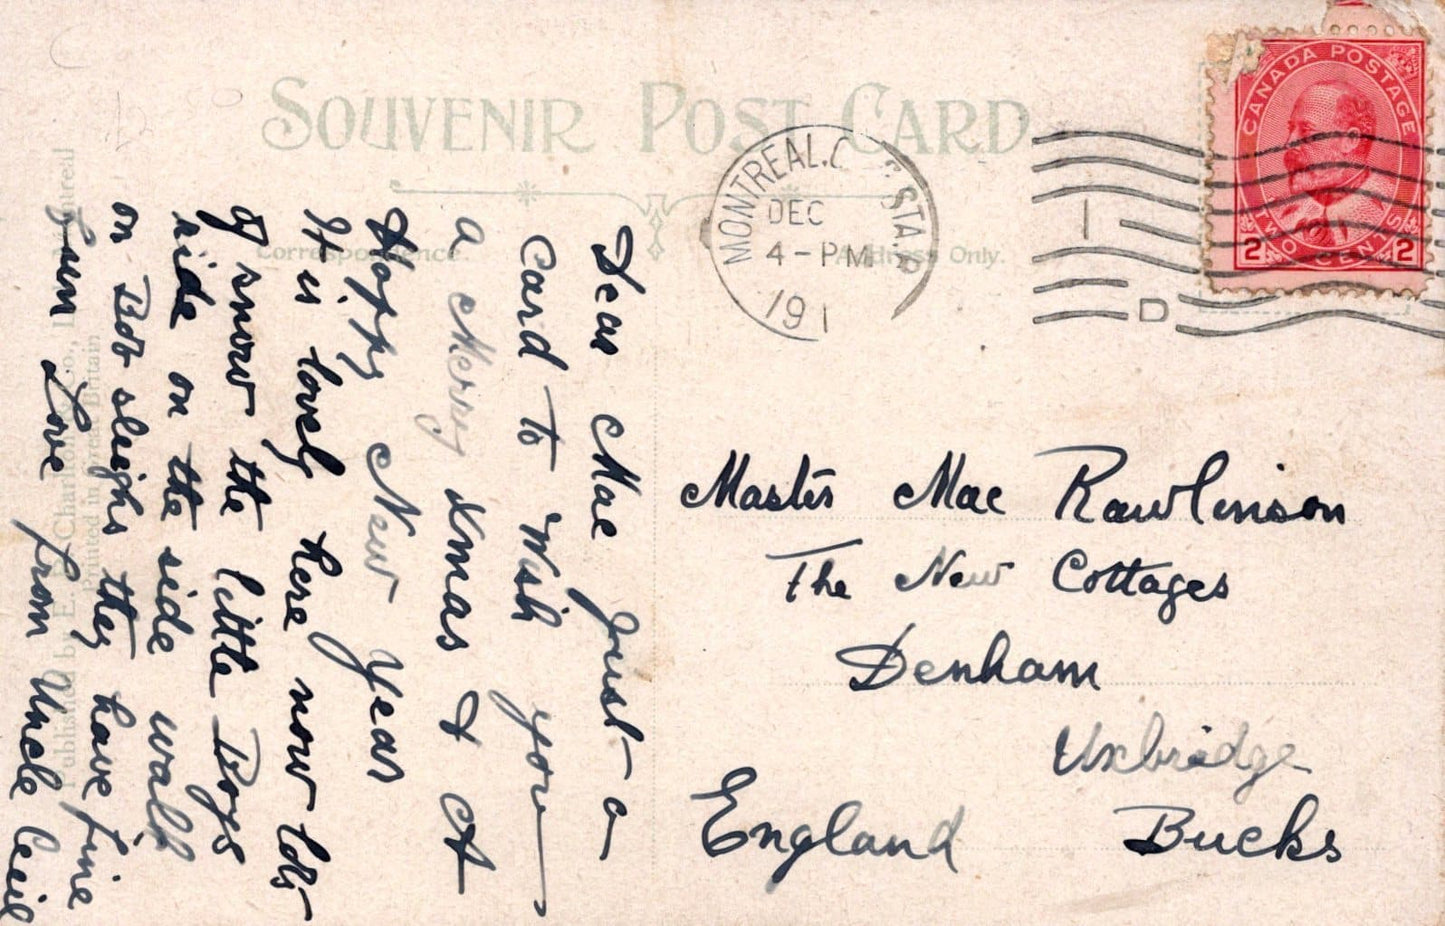 SOUVENIR POST CARD
Correspondence.
Address Only.
MONTREAL. STA.
DEC
4-PM
191
D
CANADA POSTAGE
2 TWO CENTS 2
Dear Mac Just a
Card to Wish you
a Merry Xmas & A
Happy New Year
It is lovely here now lots
of snow the little Boys
ride on the side walk
on Bob sleighs they have fine
Love from Uncle Cecil
Master Mac Rawlinson
The New Cottages
Denham
Uxbridge
England Bucks
Published by E. Charlton Co., Montreal
Printed in Great Britain